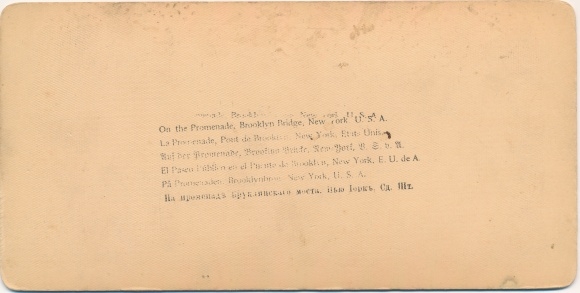 New York U. S. A.
On the Promenade, Brooklyn Bridge, New York U. S. A.
La Promenade, Pont de Brooklyn, New York, Etats Unis.
Auf der Promenade, Brooklyn Brücke, New York, V. S. v. A.
El Paseo Público en el Puente de Brooklyn, New York, E. U. de A.
På Promenaden, Brooklynbron, New York, U. S. A.
На променадѣ Бруклинскаго моста. Нью Іоркъ, Сд. Шт.